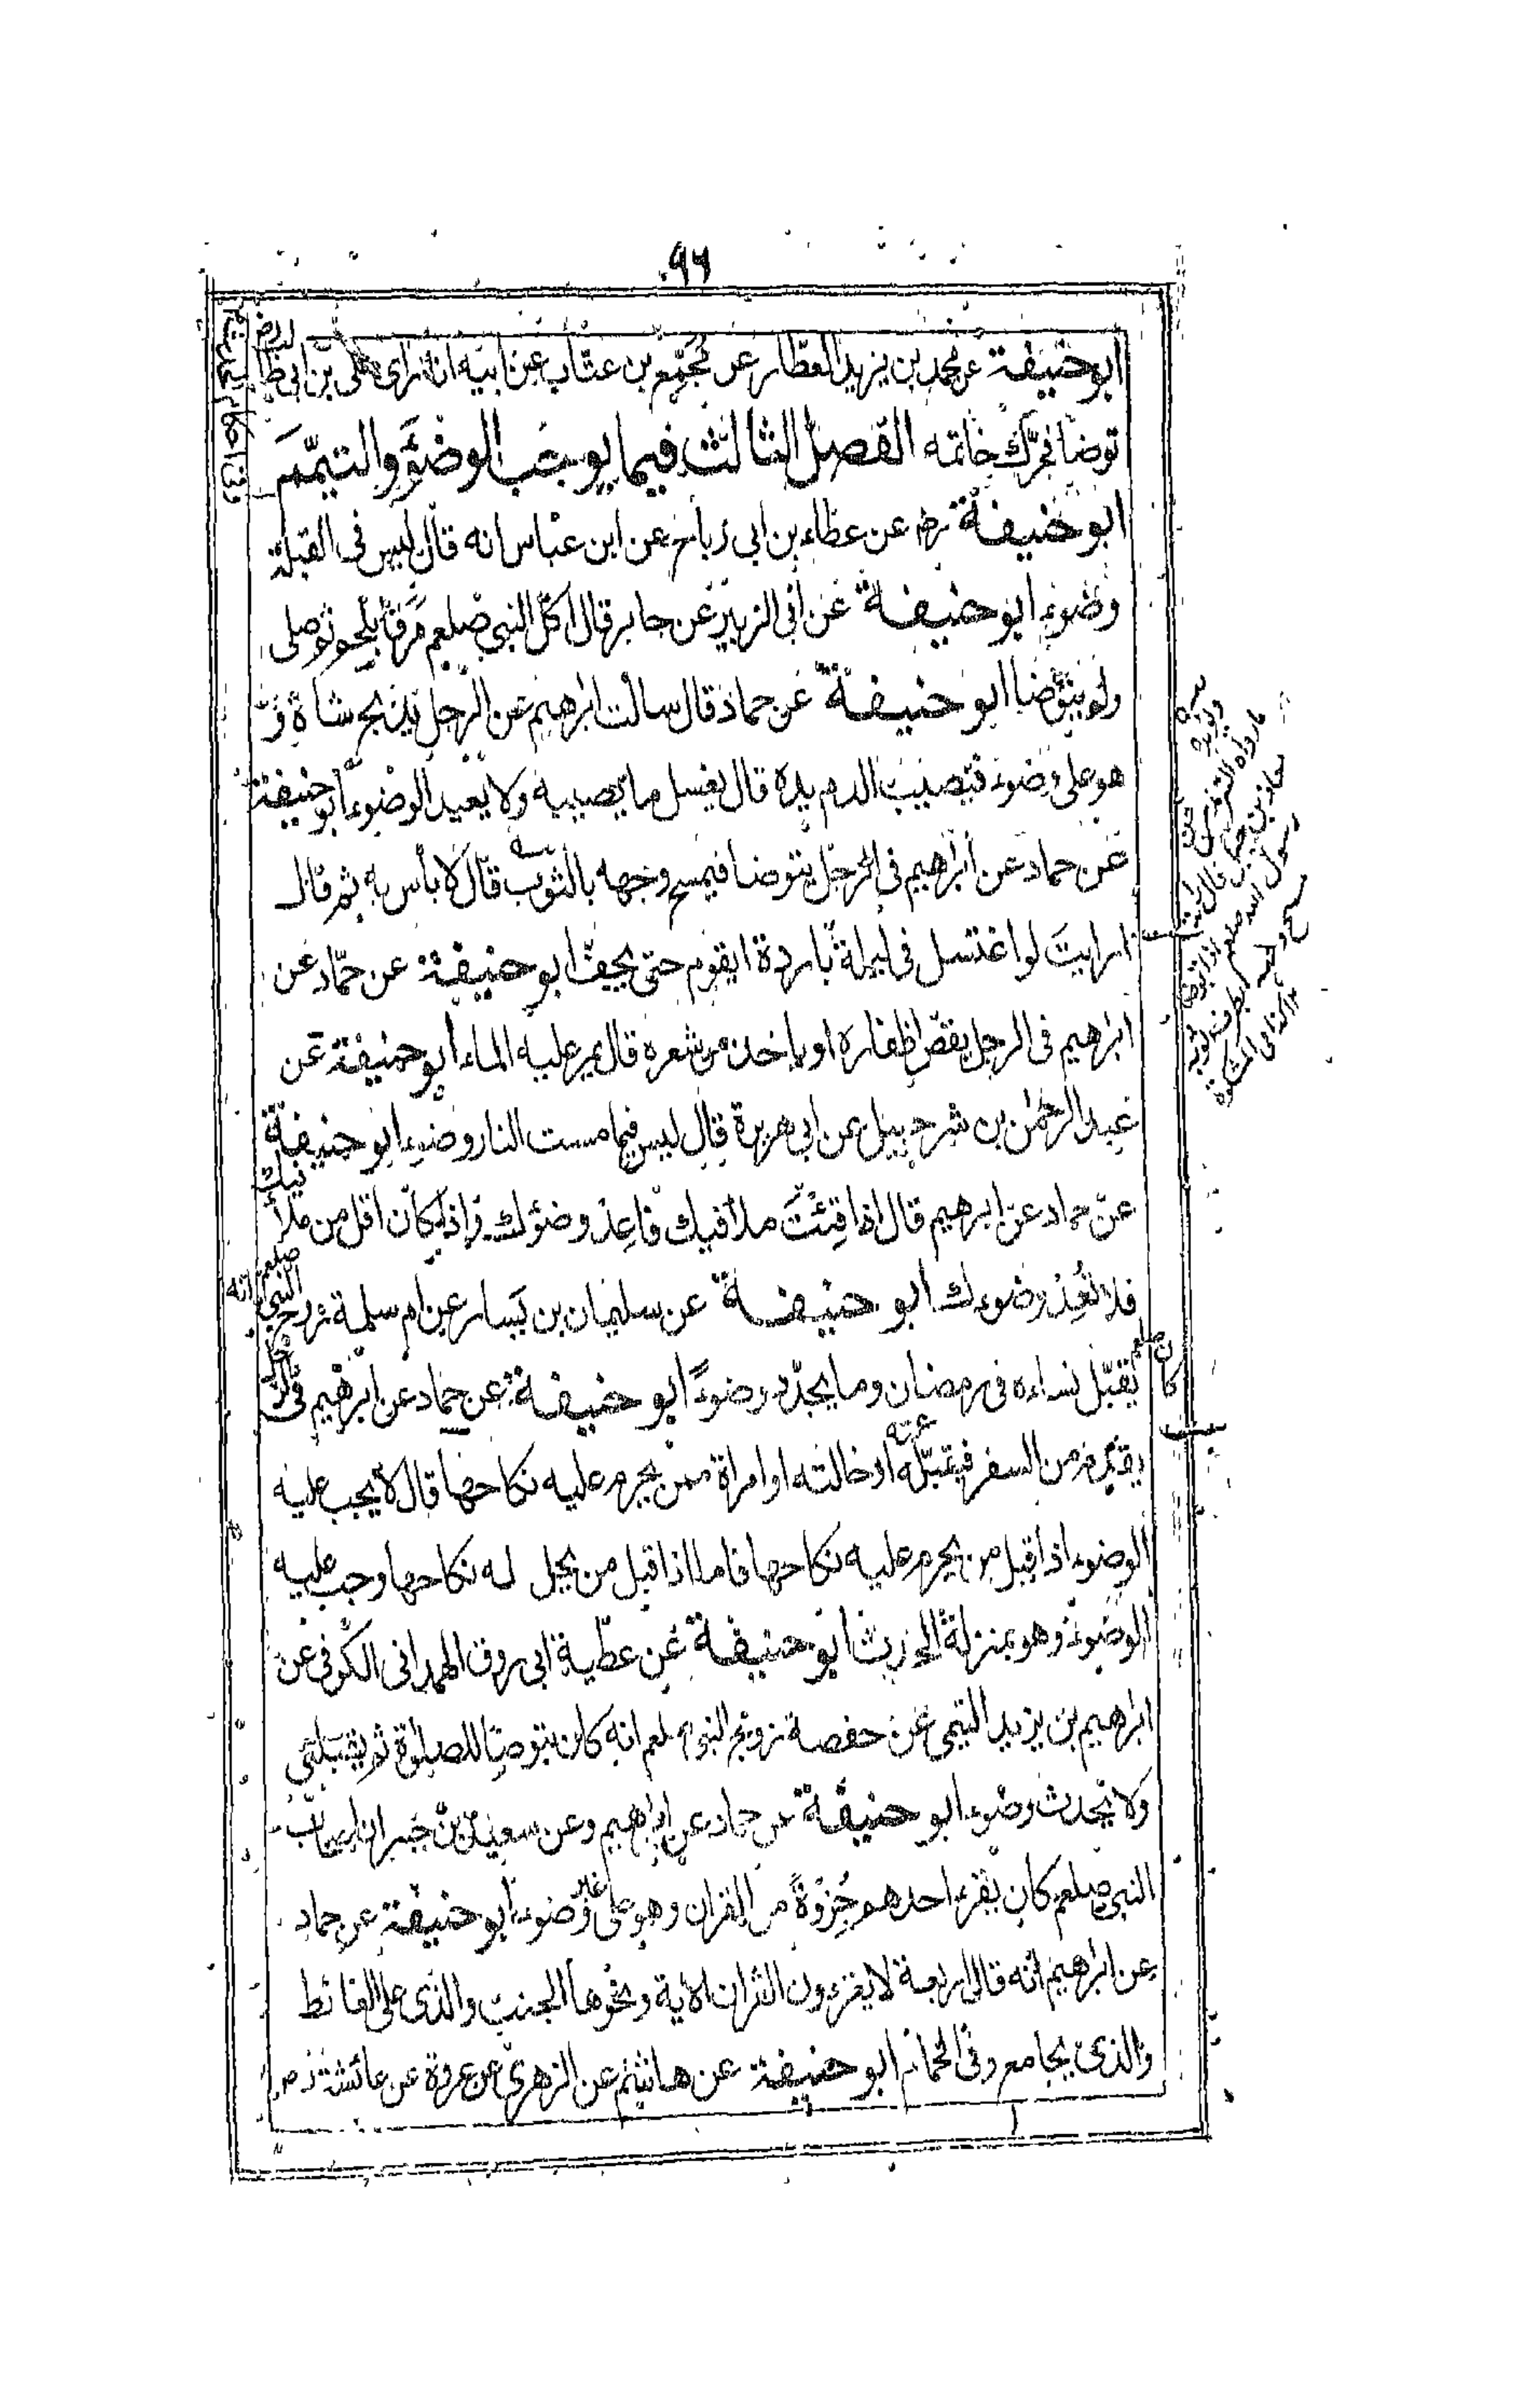 ٩٦
ابو حنيفة عن محمد بن يزيد العطار عن مجمّع بن عتاب عن ابيه انه رأى علىّ بن ابى طالب رض
توضأ فحرّك خاتمه الفصل الثالث فيما يوجب الوضوء والتيمّم
ابو حنيفة رض عن عطاء بن ابى رباح عن ابن عباس انه قال ليس فى القبلة
وضوء ابو حنيفة عن ابى الزبير عن جابر قال اكل النبى صلعم مرقا بلحم ثم صلى
ولم يتوضا ابو حنيفة عن حماد قال سالت ابراهيم عن الرجل يذبح شاة و
هو على وضوء فيصيب الدم يده قال يغسل ما يصيبه ولا يعيد الوضوء ابو حنيفة
عن حماد عن ابراهيم فى الرجل يتوضا فيمسح وجهه بالثوب قال لا بأس به ثم قال
ارايت لو اغتسل فى ليلة باردة ايقوم حتى يجفّ ابو حنيفة عن حمّاد عن
ابراهيم فى الرجل يقصّ اظفاره او ياخذ من شعره قال يمر عليه الماء ابو حنيفة عن
عبد الرحمٰن بن شرحبيل عن ابى هريرة قال ليس فيما مست النار وضوء ابو حنيفة
عن حماد عن ابرهيم قال اذا قِئْتَ ملأ فيك فاعِدْ وضوئك واذا كان اقل من ملأ فيك
فلا تُعِدْ وضوءك ابو حنيفة عن سليمان بن يسار عن ام سلمة زوج النبى صلعم انه
كان صلعم يقبّل نساءه فى رمضان وما يجدّد وضوءً ابو حنيفة عن حماد عن ابرهيم فى الرجل
يقدم من السفر فيقبّله عمته او خالته او امراة ممن يحرم عليه نكاحها قال لا يجب عليه
الوضوء اذا قبل من يحرم عليه نكاحها فاما اذا قبل من يحل له نكاحها وجب عليه
الوضوء وهو بمنزلة الحدث ابو حنيفة عن عطية ابى روق الهمدانى الكوفى عن
ابراهيم بن يزيد التيمى عن حفصة زوج النبى صلعم انه كان يتوضا للصلوة ثم يقبلنى
ولا يحدث وضوء ابو حنيفة عن حماد عن ابراهيم وعن سعيد بن جبير ان اصحاب
النبى صلعم كان يقرء احدهم جُزْوَهً من القران وهو على غير وضوء ابو حنيفة عن حماد
عن ابراهيم انه قال اربعة لا يقرءون القران الاية ونحوها الجنب والذى على الغائط
والذى يجامع وفى الحمام ابو حنيفة عن هاشم عن الزهرى عن عروة عن عائشة رض
ما رواه الترمذى عن
معاذ بن جبل قال رايت
رسول الله صلعم اذا توضا
مسح وجهه بطرف ثوبه
كذا فى المشكوة